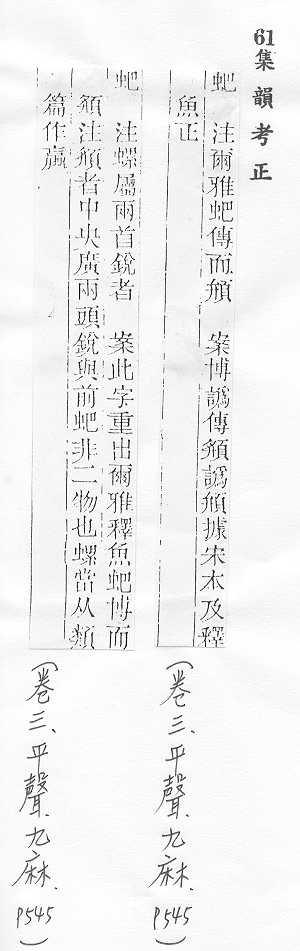 61集韻考正
蚆　注爾雅蚆傳而頯　案博譌傳頯譌頯據宋本及釋
魚正
(卷三、平聲、九麻、P545)
蚆　注螺屬兩首銳者　案此字重出爾雅釋魚蚆博而
頯注頯者中央廣兩頭銳與前蚆非二物也螺當从類
篇作蠃
(卷三、平聲、九麻、P545)